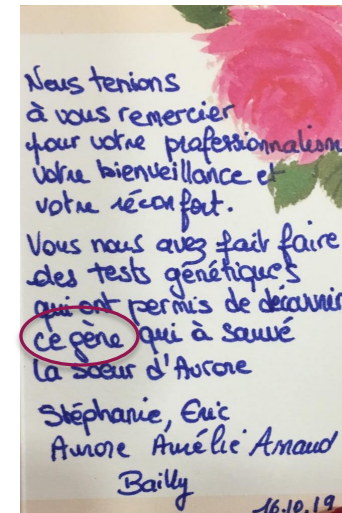 Nous tenions
à vous remercier
pour votre professionnalism
votre bienveillance et
votre réconfort.
Vous nous avez fait faire
des tests génétiques
qui ont permis de découvrir
ce gène qui à sauvé
la soeur d'Aurore
Stéphanie, Eric
Aurore Amélie Arnaud
Bailly
16.10.19